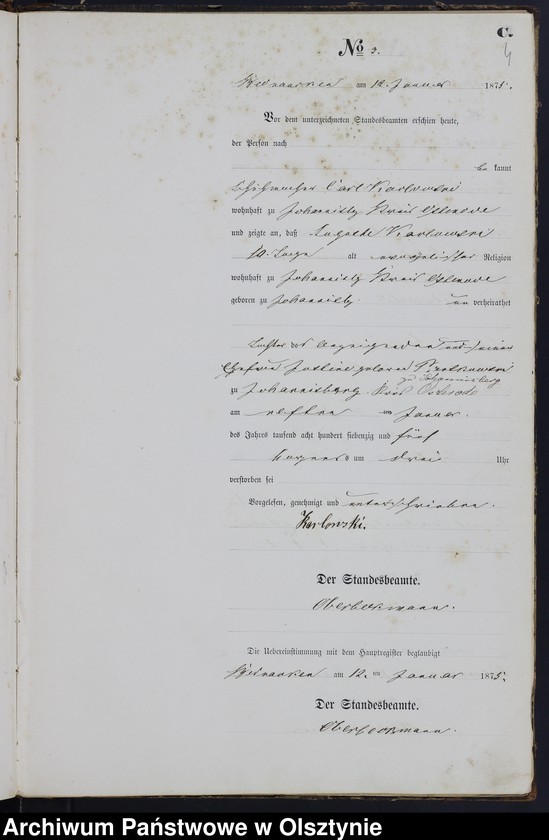 C.
4
No 3.
am 12. Januar 1875.
Vor dem unterzeichneten Standesbeamten erschien heute,
der Person nach
be kannt
Carl Karlowski
wohnhaft zu Kreis Osterode
und zeigte an, daß Karlowski
10. Tage alt evangelischer Religion
wohnhaft zu Kreis Osterode
geboren zu un verheirathet
Tochter des Anzeigenden und seiner
Ehefrau Justine geborene
zu Johannisberg
zu Kreis Osterode
am elften ten Januar
des Jahres tausend acht hundert siebenzig und fünf
Morgens um drei Uhr
verstorben sei
Vorgelesen, genehmigt und unterschrieben.
Karlowski.
Der Standesbeamte.
Die Uebereinstimmung mit dem Hauptregister beglaubigt
am 12. ten Januar 1875.
Der Standesbeamte.
Archiwum Państwowe w Olsztynie